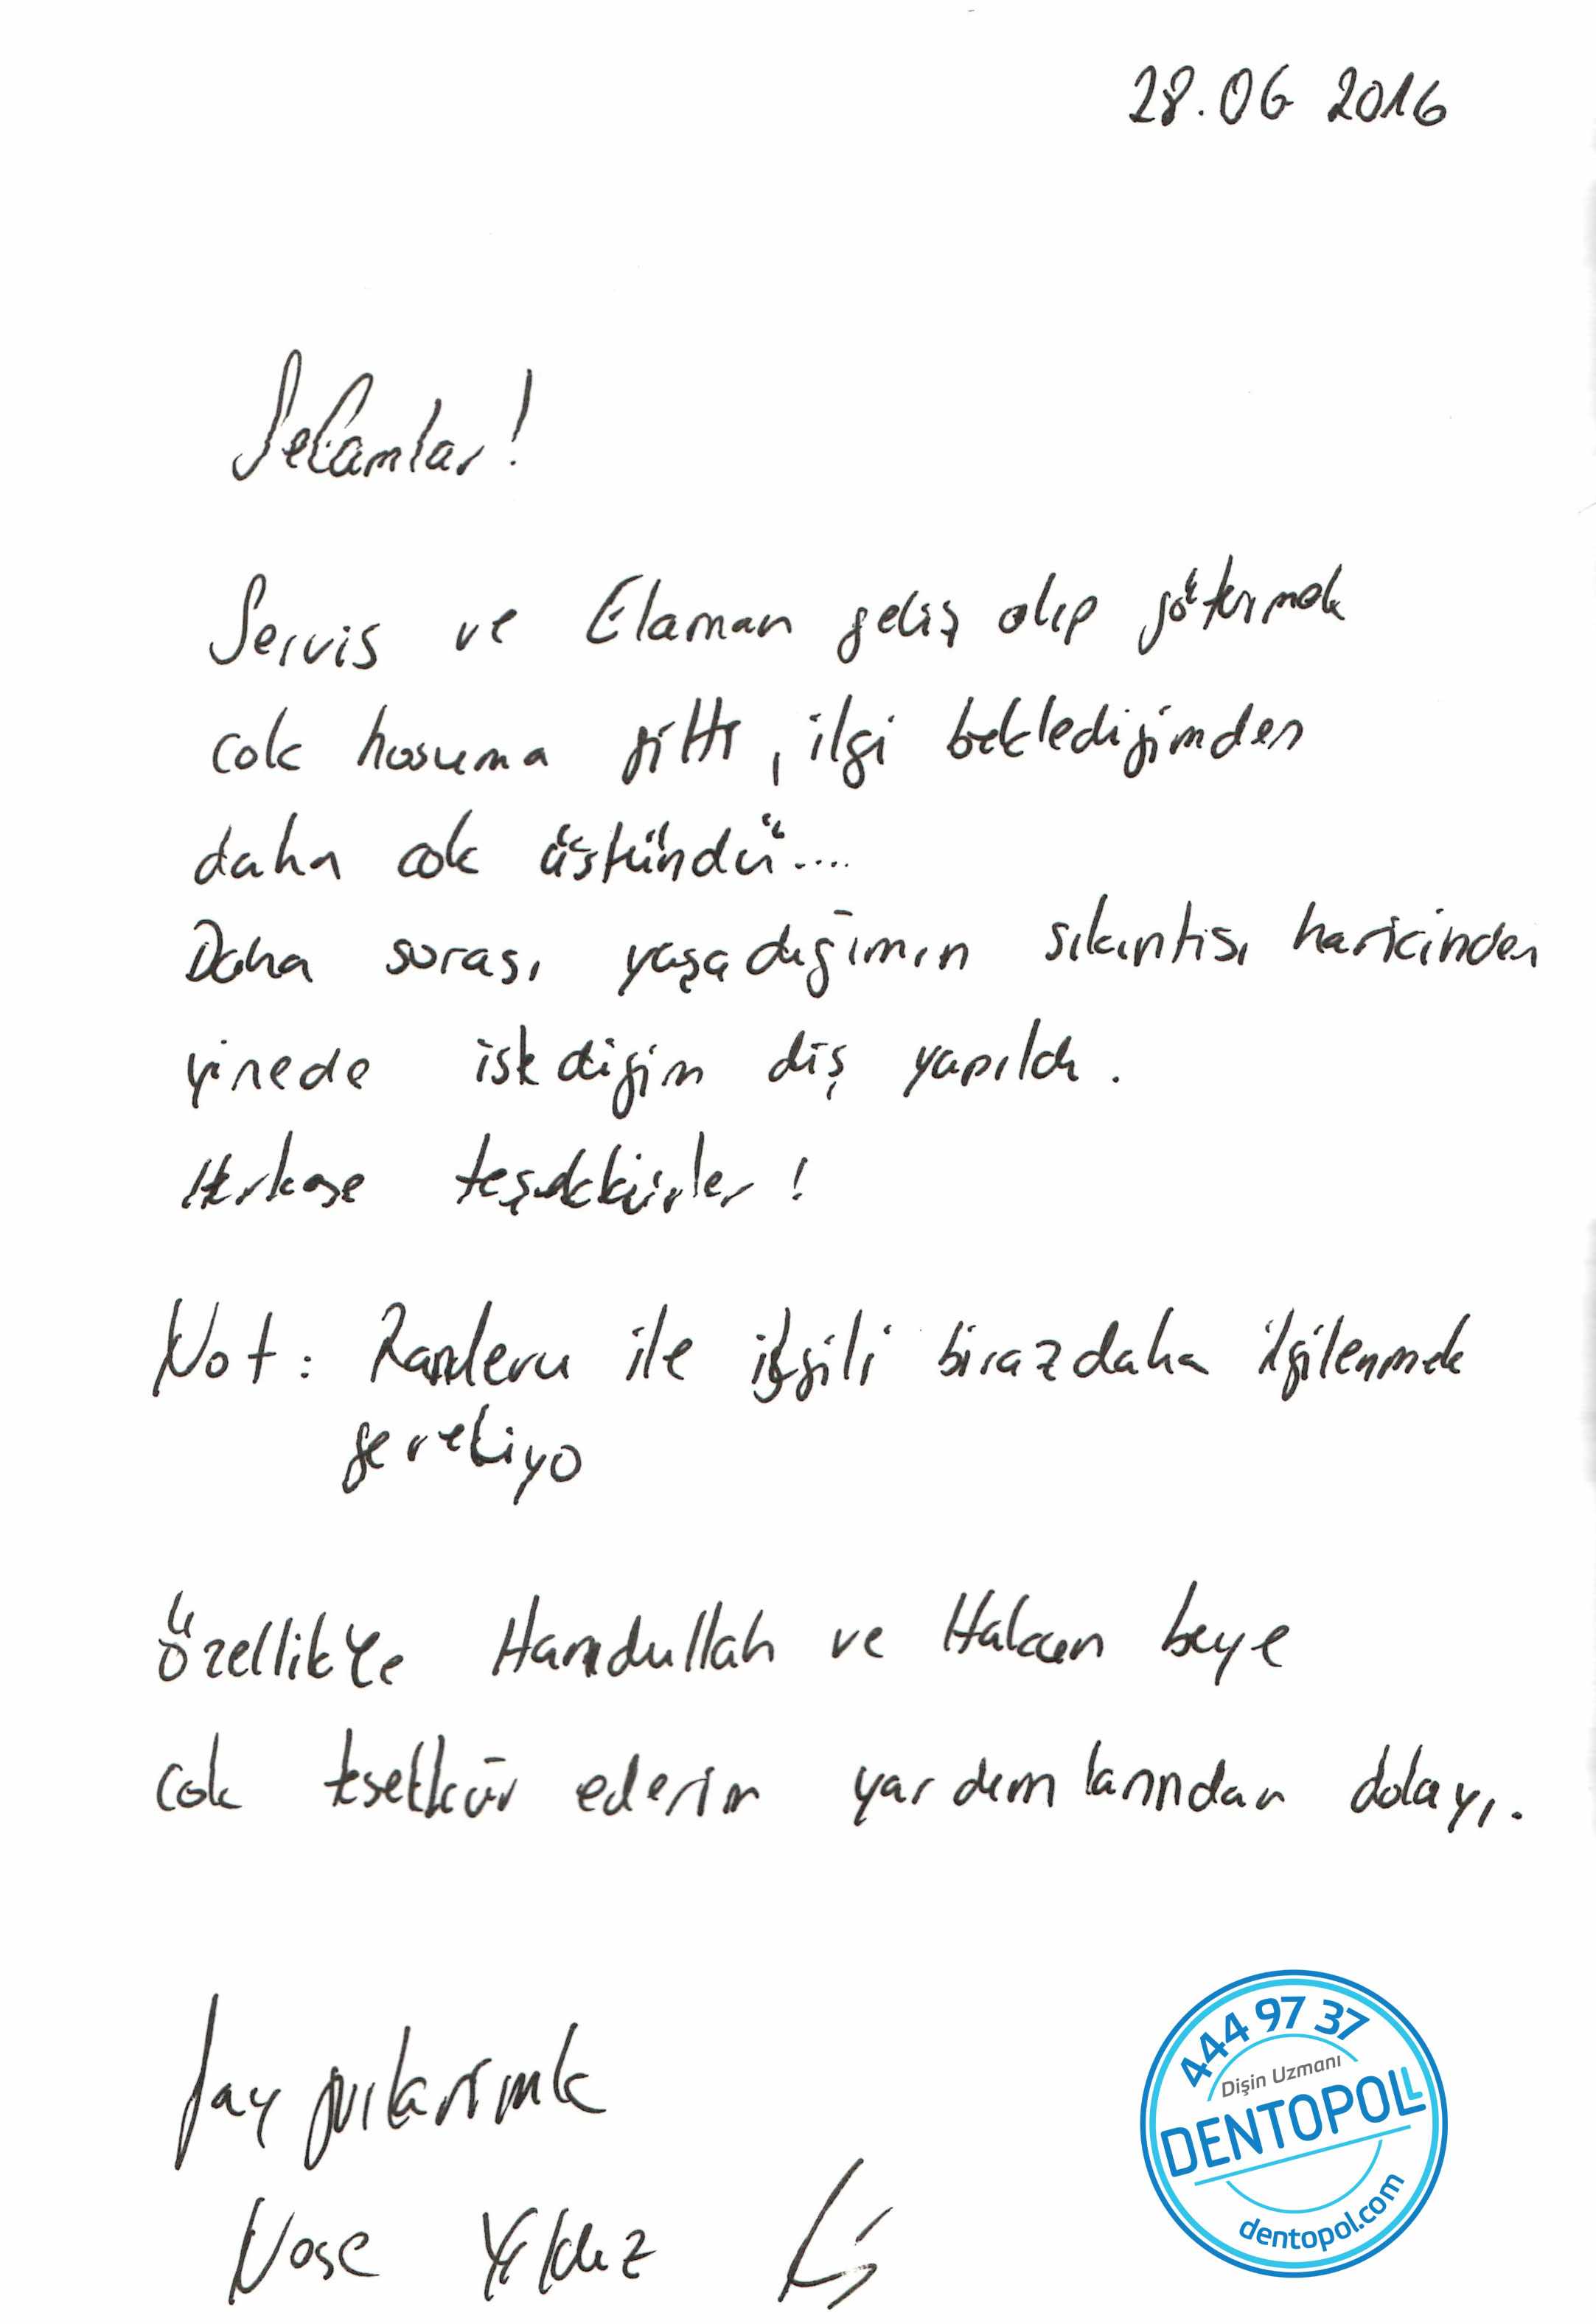 28.06 2016
Selamlar!
Servis ve Elaman geliş alıp götermek
cok hosuma gitti, ilgi beklediğimden
daha cok üstündü....
Daha sorası yaşadığımın sıkıntısı haricinden
yinede istediğim diş yapıldı.
Herkese teşekkürler!
Not: Randevu ile ilgili birazdaha ilgilenmek
gerekiyo
özellikle Hamdullah ve Hakan beye
cok tesekkür ederim yardımlarından dolayı.
Yıldız
444 97 37
Dişin Uzmanı
DENTOPOLL
dentopol.com